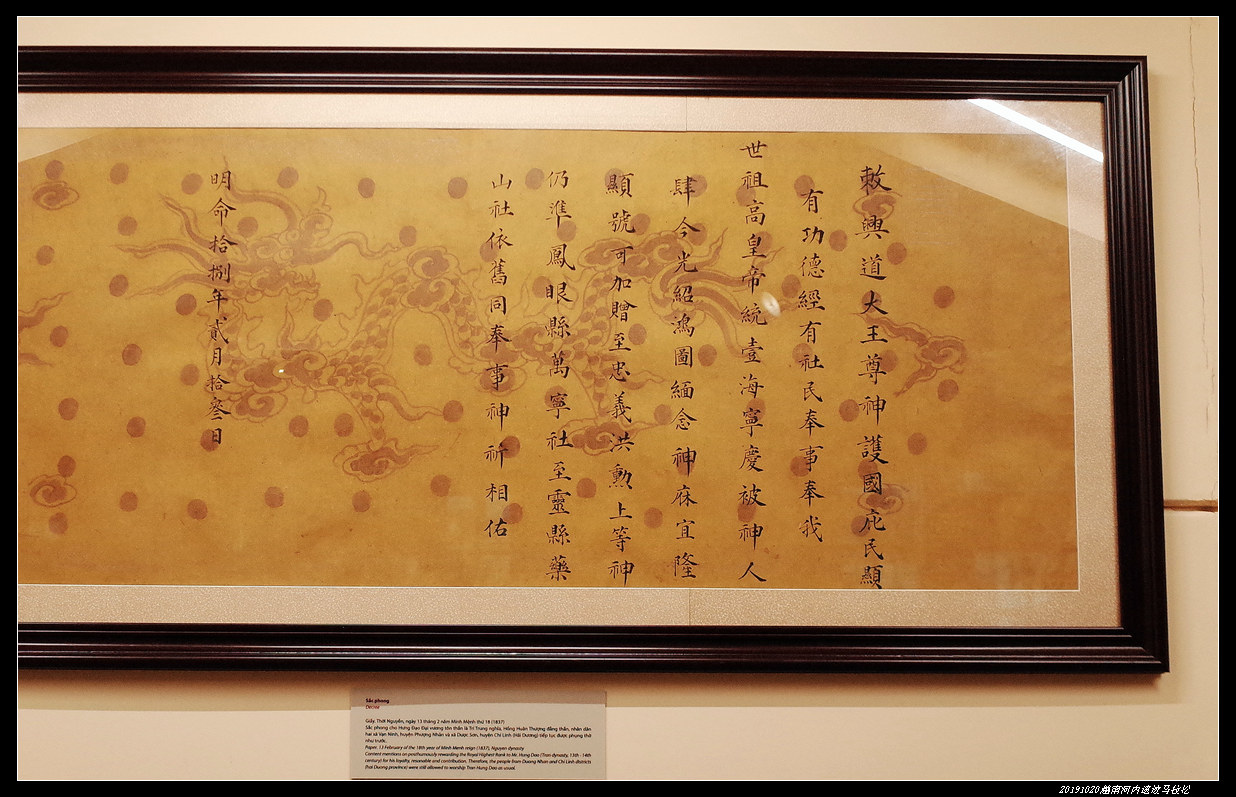 敕興道大王尊神護國庇民顯
有功德經有社民奉事奉我
世祖高皇帝統壹海寧慶被神人
肆今光紹鴻圖緬念神庥宜隆
顯號可加贈至忠義洪勳上等神
仍準鳳眼縣萬寧社至靈縣藥
山社依舊同奉事神祈相佑
明命拾捌年貳月拾叄日
Sắc phong
Decree
Giấy. Thời Nguyễn, ngày 13 tháng 2 năm Minh Mệnh thứ 18 (1837)
Sắc phong cho Hưng Đạo Đại vương tôn thần là Trí Trung nghĩa, Hồng Huân Thượng đẳng thần, nhân dân
hai xã Vạn Ninh, huyện Phượng Nhãn và xã Dược Sơn, huyện Chí Linh (Hải Dương) tiếp tục được phụng thờ
như trước.
Paper. 13 February of the 18th year of Minh Menh reign (1837), Nguyen dynasty
Content mentions on posthumously rewarding the Royal Highest Rank to Mr. Hung Dao (Tran dynasty, 13th - 14th
century) for his loyalty, resonable and contribution. Therefore, the people from Duong Nhan and Chi Linh districts
(hai Duong province) were still allowed to worship Tran Hung Dao as usual.
20191020越南河内遥波马拉松